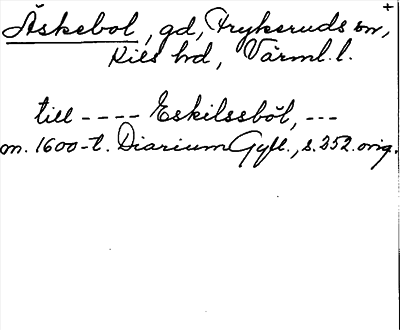 +
Äskebol, gd, Frykeruds sn,
Kils hd, Värml. l.
till ---- Eskilssböl, ---
m. 1600-t. Diarium Gyll., s. 252. orig.